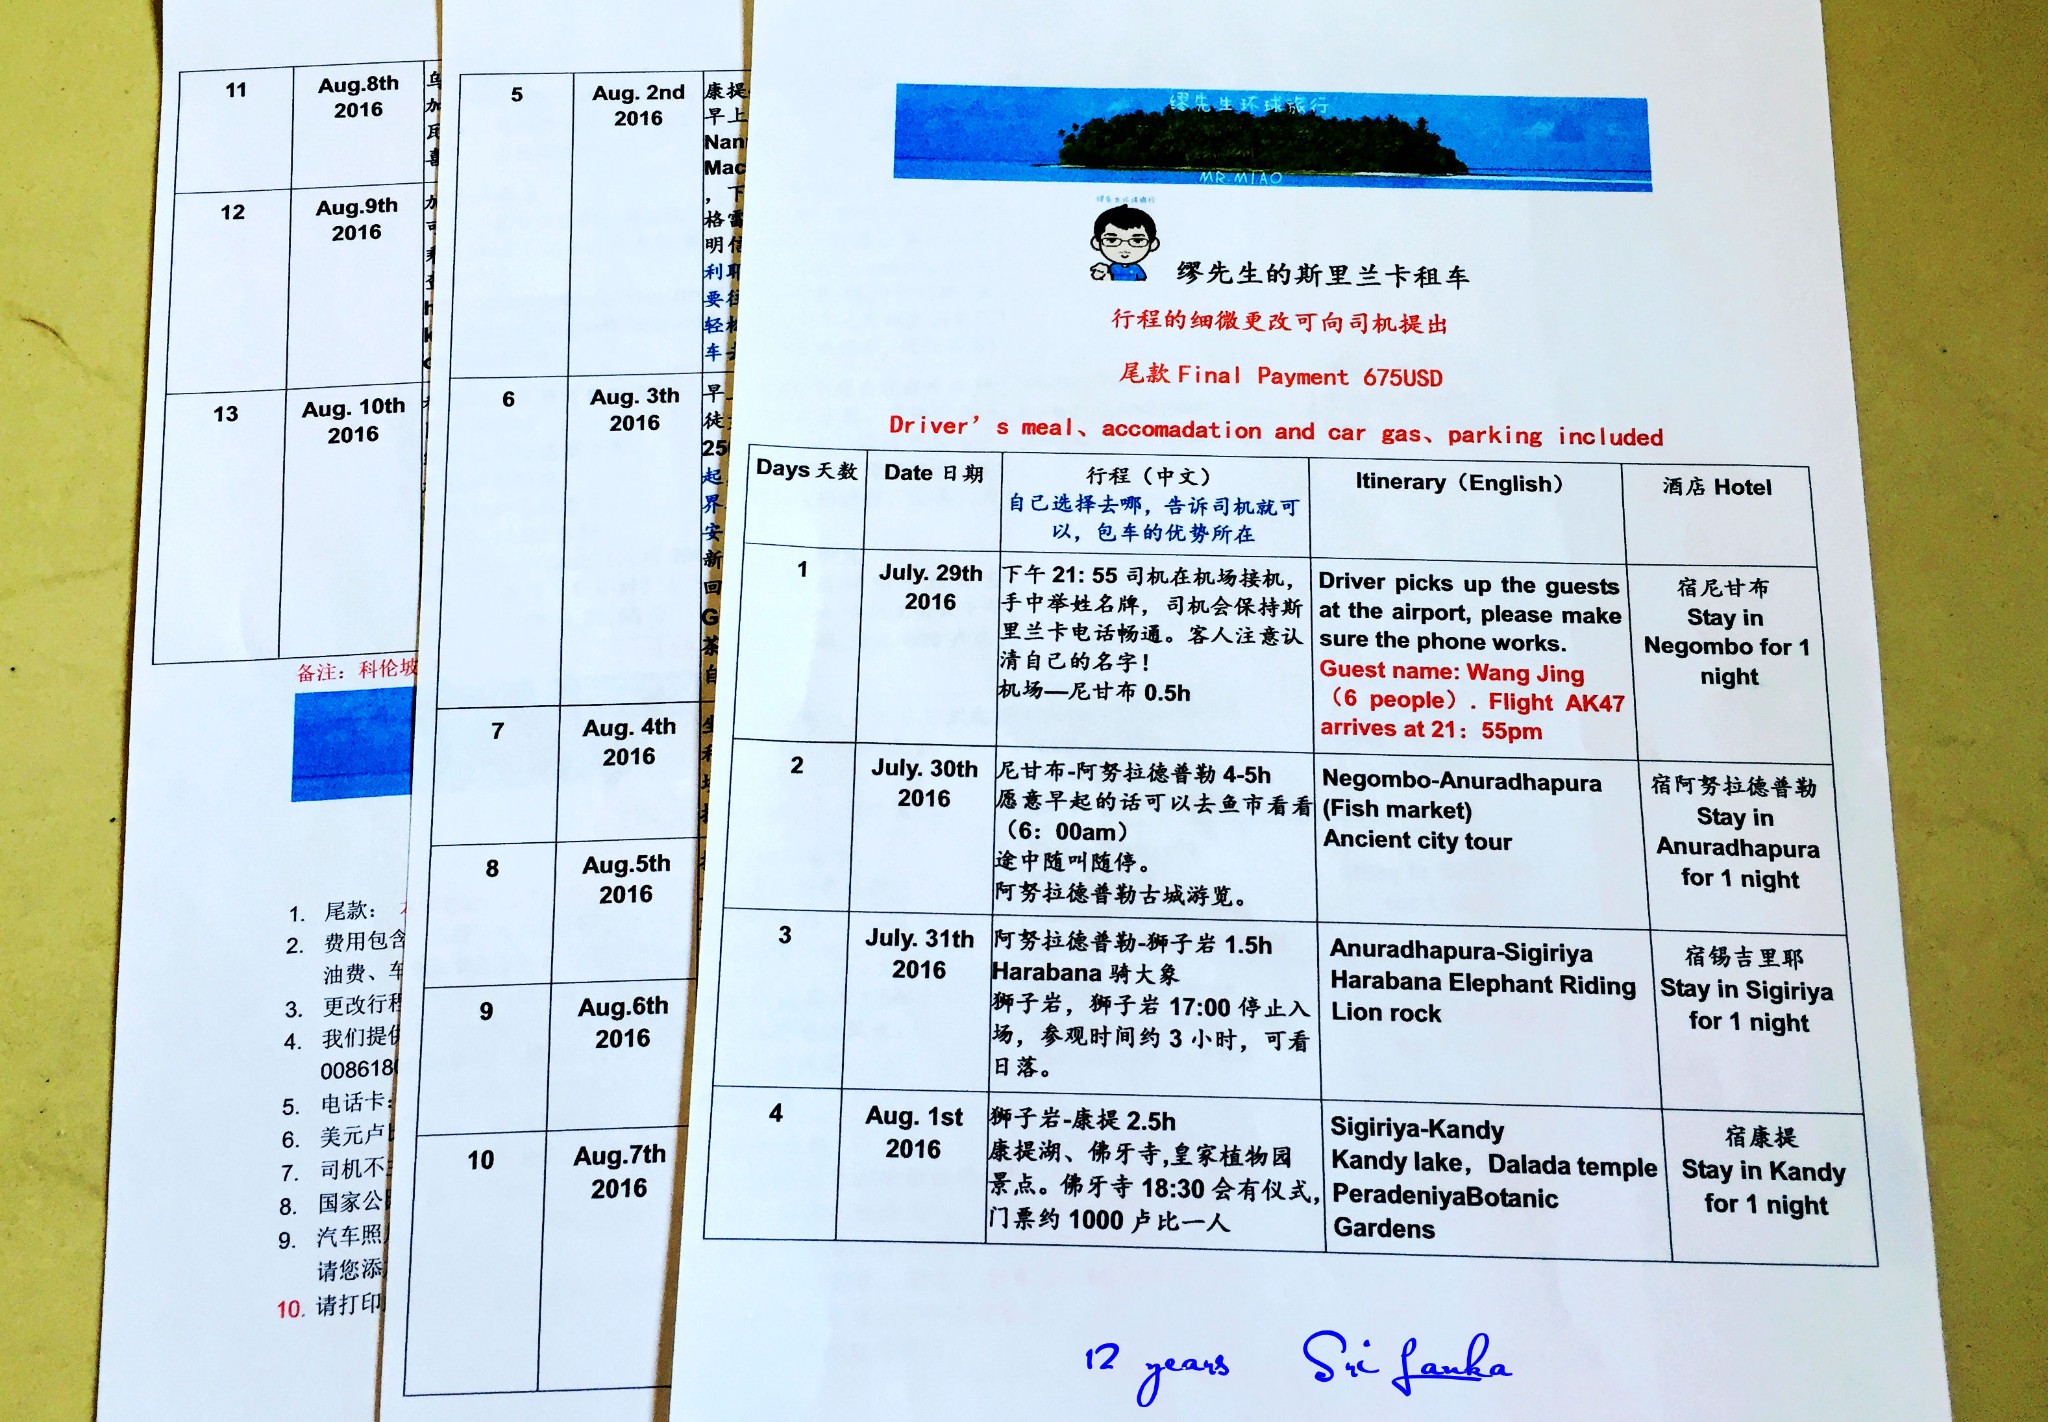 缪先生环球旅行
MR.MIAO
缪先生环球旅行
缪先生的斯里兰卡租车
行程的细微更改可向司机提出
尾款 Final Payment 675USD
Driver’s meal、accomadation and car gas、parking included
Days 天数
Date 日期
行程（中文）
自己选择去哪，告诉司机就可
以，包车的优势所在
Itinerary（English）
酒店 Hotel
1
July. 29th
2016
下午 21: 55 司机在机场接机，
手中举姓名牌，司机会保持斯
里兰卡电话畅通。客人注意认
清自己的名字！
机场—尼甘布 0.5h
Driver picks up the guests
at the airport, please make
sure the phone works.
Guest name: Wang Jing
（6 people）. Flight AK47
arrives at 21：55pm
宿尼甘布
Stay in
Negombo for 1
night
2
July. 30th
2016
尼甘布-阿努拉德普勒 4-5h
愿意早起的话可以去鱼市看看
（6：00am）
途中随叫随停。
阿努拉德普勒古城游览。
Negombo-Anuradhapura
(Fish market)
Ancient city tour
宿阿努拉德普勒
Stay in
Anuradhapura
for 1 night
3
July. 31th
2016
阿努拉德普勒-狮子岩 1.5h
Harabana 骑大象
狮子岩，狮子岩 17:00 停止入
场，参观时间约 3 小时，可看
日落。
Anuradhapura-Sigiriya
Harabana Elephant Riding
Lion rock
宿锡吉里耶
Stay in Sigiriya
for 1 night
4
Aug. 1st
2016
狮子岩-康提 2.5h
康提湖、佛牙寺,皇家植物园
景点。佛牙寺 18:30 会有仪式，
门票约 1000 卢比一人
Sigiriya-Kandy
Kandy lake，Dalada temple
PeradeniyaBotanic
Gardens
宿康提
Stay in Kandy
for 1 night
12 years Sri Lanka
5
Aug. 2nd
2016
康提
早上
Nan
Mac
，下
格雷
明信
利耶
要往
轻松
车去
6
Aug. 3th
2016
早上
徒
250
起
界
安
新
回
G
茶
自
7
Aug. 4th
2016
8
Aug.5th
2016
9
Aug.6th
2016
10
Aug.7th
2016
11
Aug.8th
2016
12
Aug.9th
2016
13
Aug. 10th
2016
备注：科伦坡
1. 尾款：
2. 费用包含
油费、车
3. 更改行程
4. 我们提供
0086180
5. 电话卡：
6. 美元卢比
7. 司机不
8. 国家公园
9. 汽车照
请您添
10. 请打印